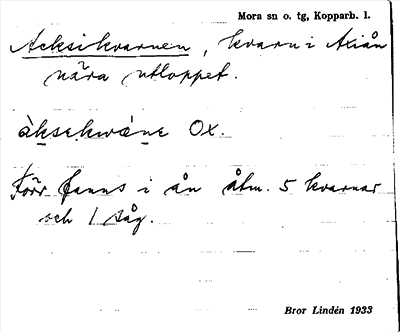 Mora sn o. tg, Kopparb. l.
Acksikvarnen, kvarn i Axiån
nära utloppet.
àksekwæ̀ne Ox.
Förr fanns i ån åtm. 5 kvarnar
och 1 såg.
Bror Lindén 1933